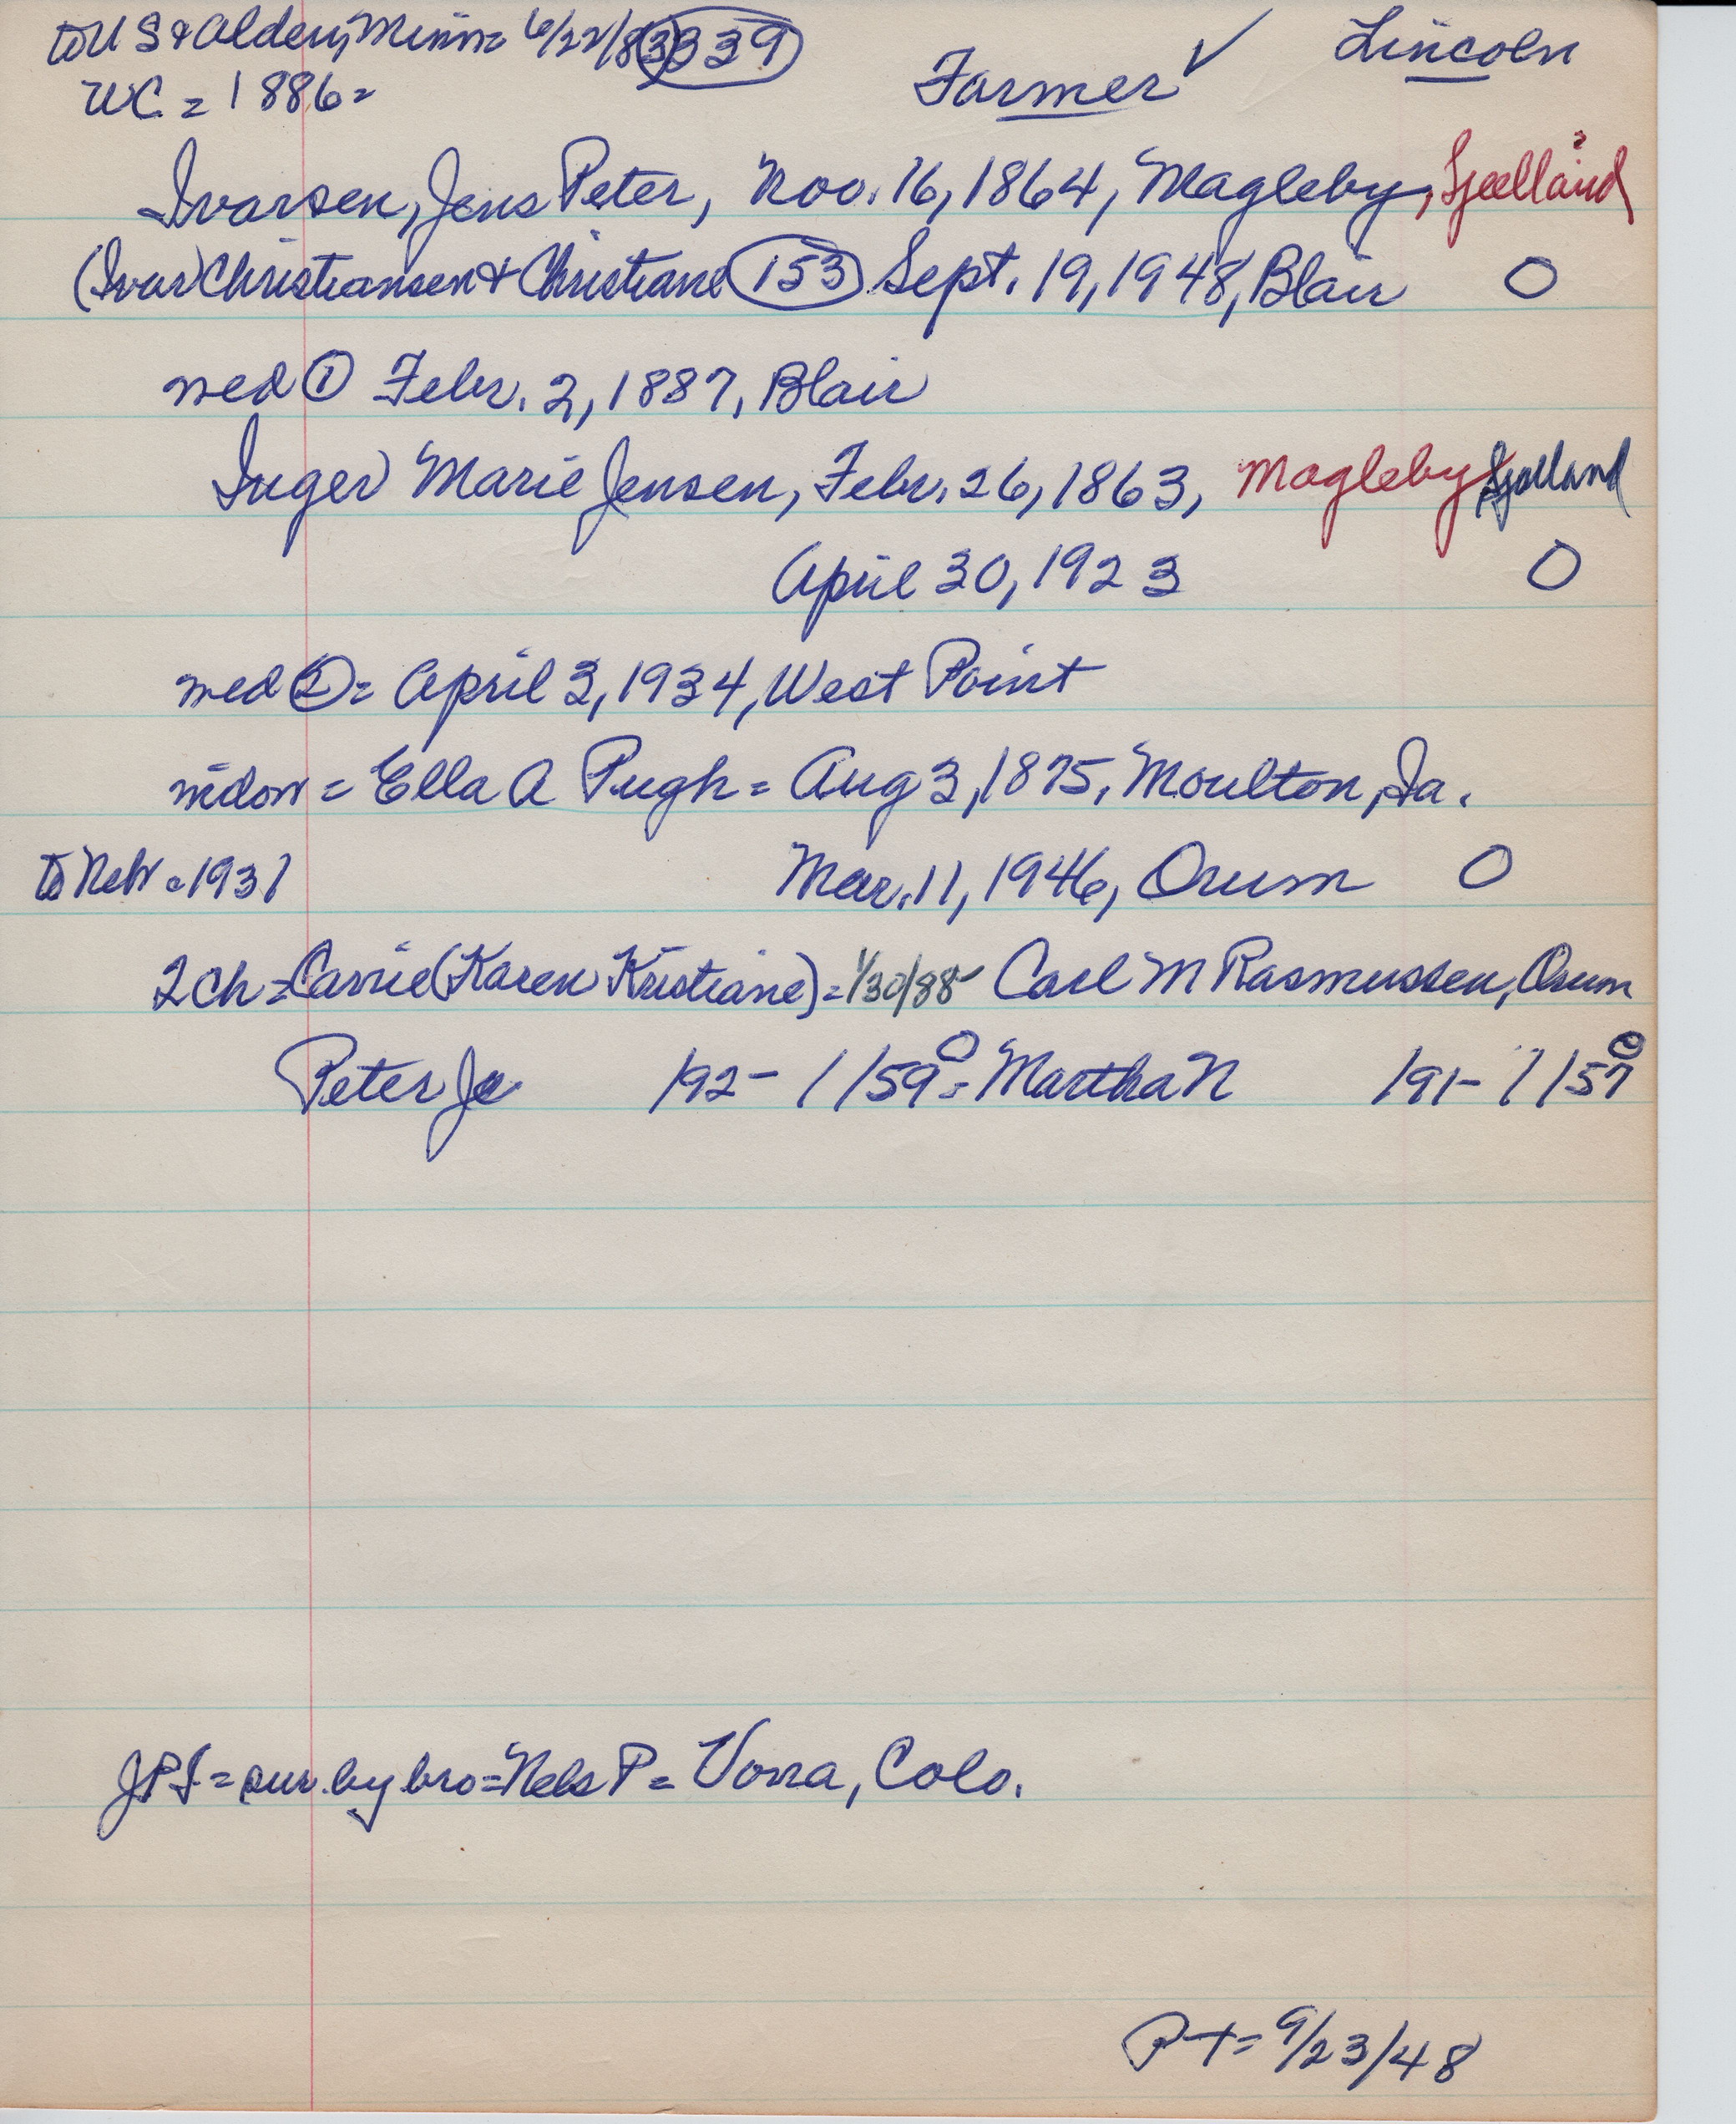 to U S & Alden, Minn = 6/22/83 339
Farmer ✓ Lincoln
WC = 1886 =
Ivarsen, Jens Peter, Nov. 16, 1864, Magleby, Sjælland
(Ivar) Christiansen & Christiane 153 Sept. 19, 1948, Blair O
med ① Febr. 2, 1887, Blair
Inger Marie Jensen, Febr. 26, 1863, Magleby, Sjælland
April 30, 1923 O
med ② = April 3, 1934, West Point
= Ella A Pugh = Aug 3, 1875, Moulton, Ia.
to Nebr = 1931 Mar. 11, 1946, Orum O
2 ch = Carrie (Karen Kristiane) = 1/30/88 Carl M Rasmussen, Orum
Peter Jo 192 - 1/59 O = Martha N 191 - 7/57 O
JPI = sur. by bro = Nels P = Vona, Colo.
PT = 9/23/48